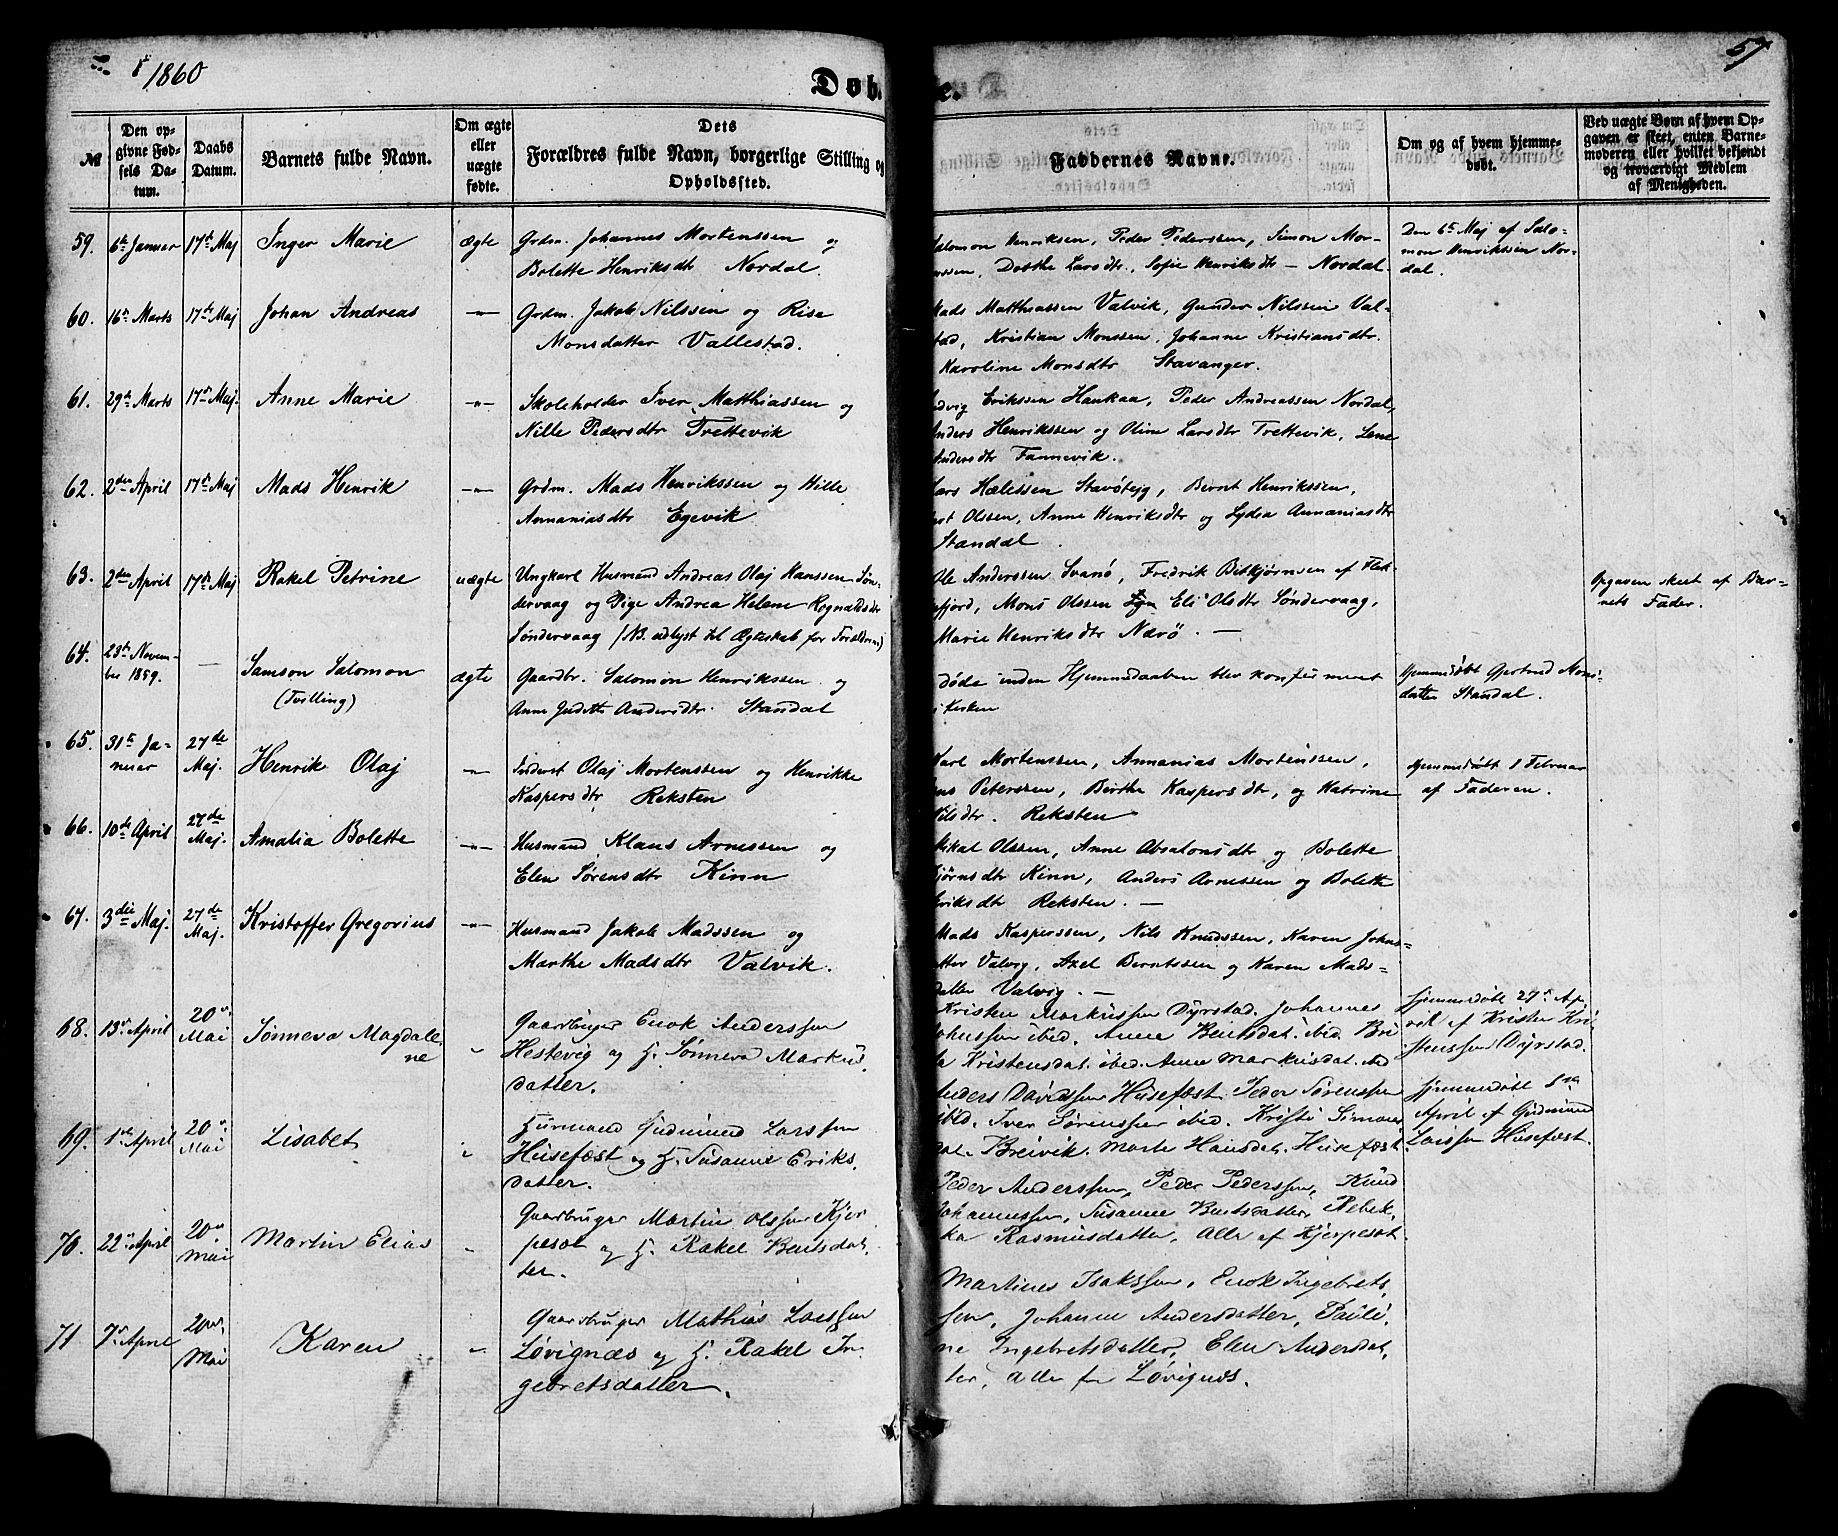 1860
Døb. e.
57
№
Den opgivne Fødsels Datum.
Daabs Datum.
Barnets fulde Navn.
Om ægte eller uægte fødte.
Dets Forældres fulde Navn, borgerlige Stilling og Opholdssted.
Faddernes Navne.
Om og af hvem hjemmedøbt.
Ved uægte Børn af hvem Opgaven er skeet, enten Barnemoderen eller hvilket bekjendt og troværdigt Medlem af Menigheden.
59. 6te Januar 17de Maj Inger Marie ægte Grdm. Johannes Mortenssen og
Bolette Henriksdtr Nordal.
Salomon Henriksen, Peder Pederssen, Simon Mor-
tenssen, Dorthe Larsdtr., Sofie Henriksdtr – Nordal.
Den 6te Maj af Salo-
mon Henrikssen Nor-
dal.
60. 16de Marts 17de Maj Johan Andreas –"– Grdm. Jakob Nilssen og Rise
Monsdatter Vallestad.
Mads Matthiassen Valvik, Gunder Nilssen Val-
stad, Kristian Monssen, Johanne Kristiansdtr.
Karoline Monsdtr Stavanger.
61. 29de Marts 17de Maj. Anne Marie –"– Skoleholder Iver Matthiassen og
Nille Pedersdtr Trettevik
Ludvig Erikssen Haukaa, Peder Andreassen Nordal,
Anders Henrikssen og Oline Larsdtr Trettevik, Lene
Andersdtr Fannevik.
62. 2den April 17de Maj Mads Henrik –"– Grdm. Mads Henrikssen og Hille
Annaniasdtr Egevik
Lars Hælissen Stavøtejg, Bernt Henrikssen,
Olssen, Anne Henriksdtr og Lydia Annaniasdtr
Standal.
63. 2den April 17de Maj Rakel Petrine uægte Ungkarl Husmand Andreas Olaj Hanssen Søn-
dervaag og Pige Andrea Helene Rognaldsdtr
Søndervaag (NB. udlyst til Ægteskab for Forældrene)
Ole Anderssen Svanø, Fredrik Birkjørnsen af Flek-
kefjord, Mons Olssen Eli Olsdtr Søndervaag,
Marie Henriksdtr Nærø. –
Opgaven skeet af Bar-
nets Fader.
64. 23de Novem-
ber 1859. – Samson Salomon
(Tvilling) ægte Gaardbr. Salomon Henrikssen og
Anne Judith Andersdtr. Standal
døde inden Hjemmedaaben blev konfirmeret
i Kirken
Hjemmedøbt Gjertrud Mons-
datter Standal.
65. 31te Ja-
nuar 27de Maj. Henrik Olaj –"– Inderst Olaj Mortenssen og Henrikke
Kaspersdtr Reksten
Karl Mortenssen, Annanias Mortenssen,
Peterssen, Birthe Kaspersdtr, og Katrine
Nilsdtr. Reksten
Hjemmedøbt 1 Februar
af Faderen.
66. 10de April 27de Maj. Amalia Bolette –"– Husmand Klaus Arnessen og
Elen Sørensdtr Kinn
Mikal Olssen, Anne Absalonsdtr og Bolette
Bjørnsdtr Kinn, Anders Arnessen og Bolette
Eriksdtr Reksten. –
67. 3die Maj. 27de Maj. Kristoffer Gregorius –"– Husmand Jakob Madssen og
Marthe Madsdtr Valvik.
Mads Kasperssen, Nils Knudssen, Karen Johns-
datter Valvig, Axel Berntssen og Karen Mads-
datter Valvig. –
68. 13de April 20de Mai Sønneva Magdale-
ne " Gaardbruger Enok Anderssen
Hestevig og H. Sønneva Markus-
datter.
Kristen Markussen Dyrstad. Johannes
Johnssen ibid. Anne Bentsdat. ibid. Bri-
ta Kristensdat. ibid. Anne Markusdat. ibid
Hjemmedøbt 27de Ap-
ril af Kristen Kri-
stenssen Dyrstad.
69. 1ste April 20de Mai Lisabet " Husmand Gudmund Larssen
Husefæst og H. Susanne Eriks-
datter.
Anders Davidssen Husefæst. Peder Sørenssen
ibid. Iver Sørenssen ibid. Kristi Simons-
dat. Breivik. Marte Hansdat. Husefæst
Hjemmedøbt 8de
April af Gudmund
Larssen Husefæst.
70. 22de April 20de Mai Martin Elias " Gaardbruger Martin Olssen Kjer-
pesæt og H. Rakel Bentsdat-
ter.
Peder Anderssen, Peder Pederssen, Knud
Johannessen, Susanne Bentsdatter, Rebek-
ka Rasmusdatter, Alle af Kjerpesæt.
71 7de April 20de Mai Karen " Gaardbruger Mathias Larssen
Løvignæs og H. Rakel In-
gebretsdatter.
Martines Isakssen, Enok Ingebrets-
sen, Johanne Andersdatter, Pauli-
ne Ingebretsdatter, Elen Andersdat-
ter, alle fra Løvignæs.